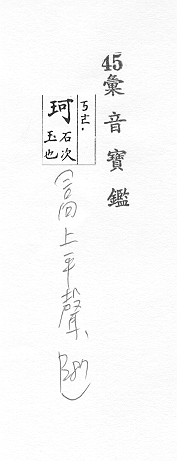 45 彙音寶鑑
珂 石次玉也
高上平聲、